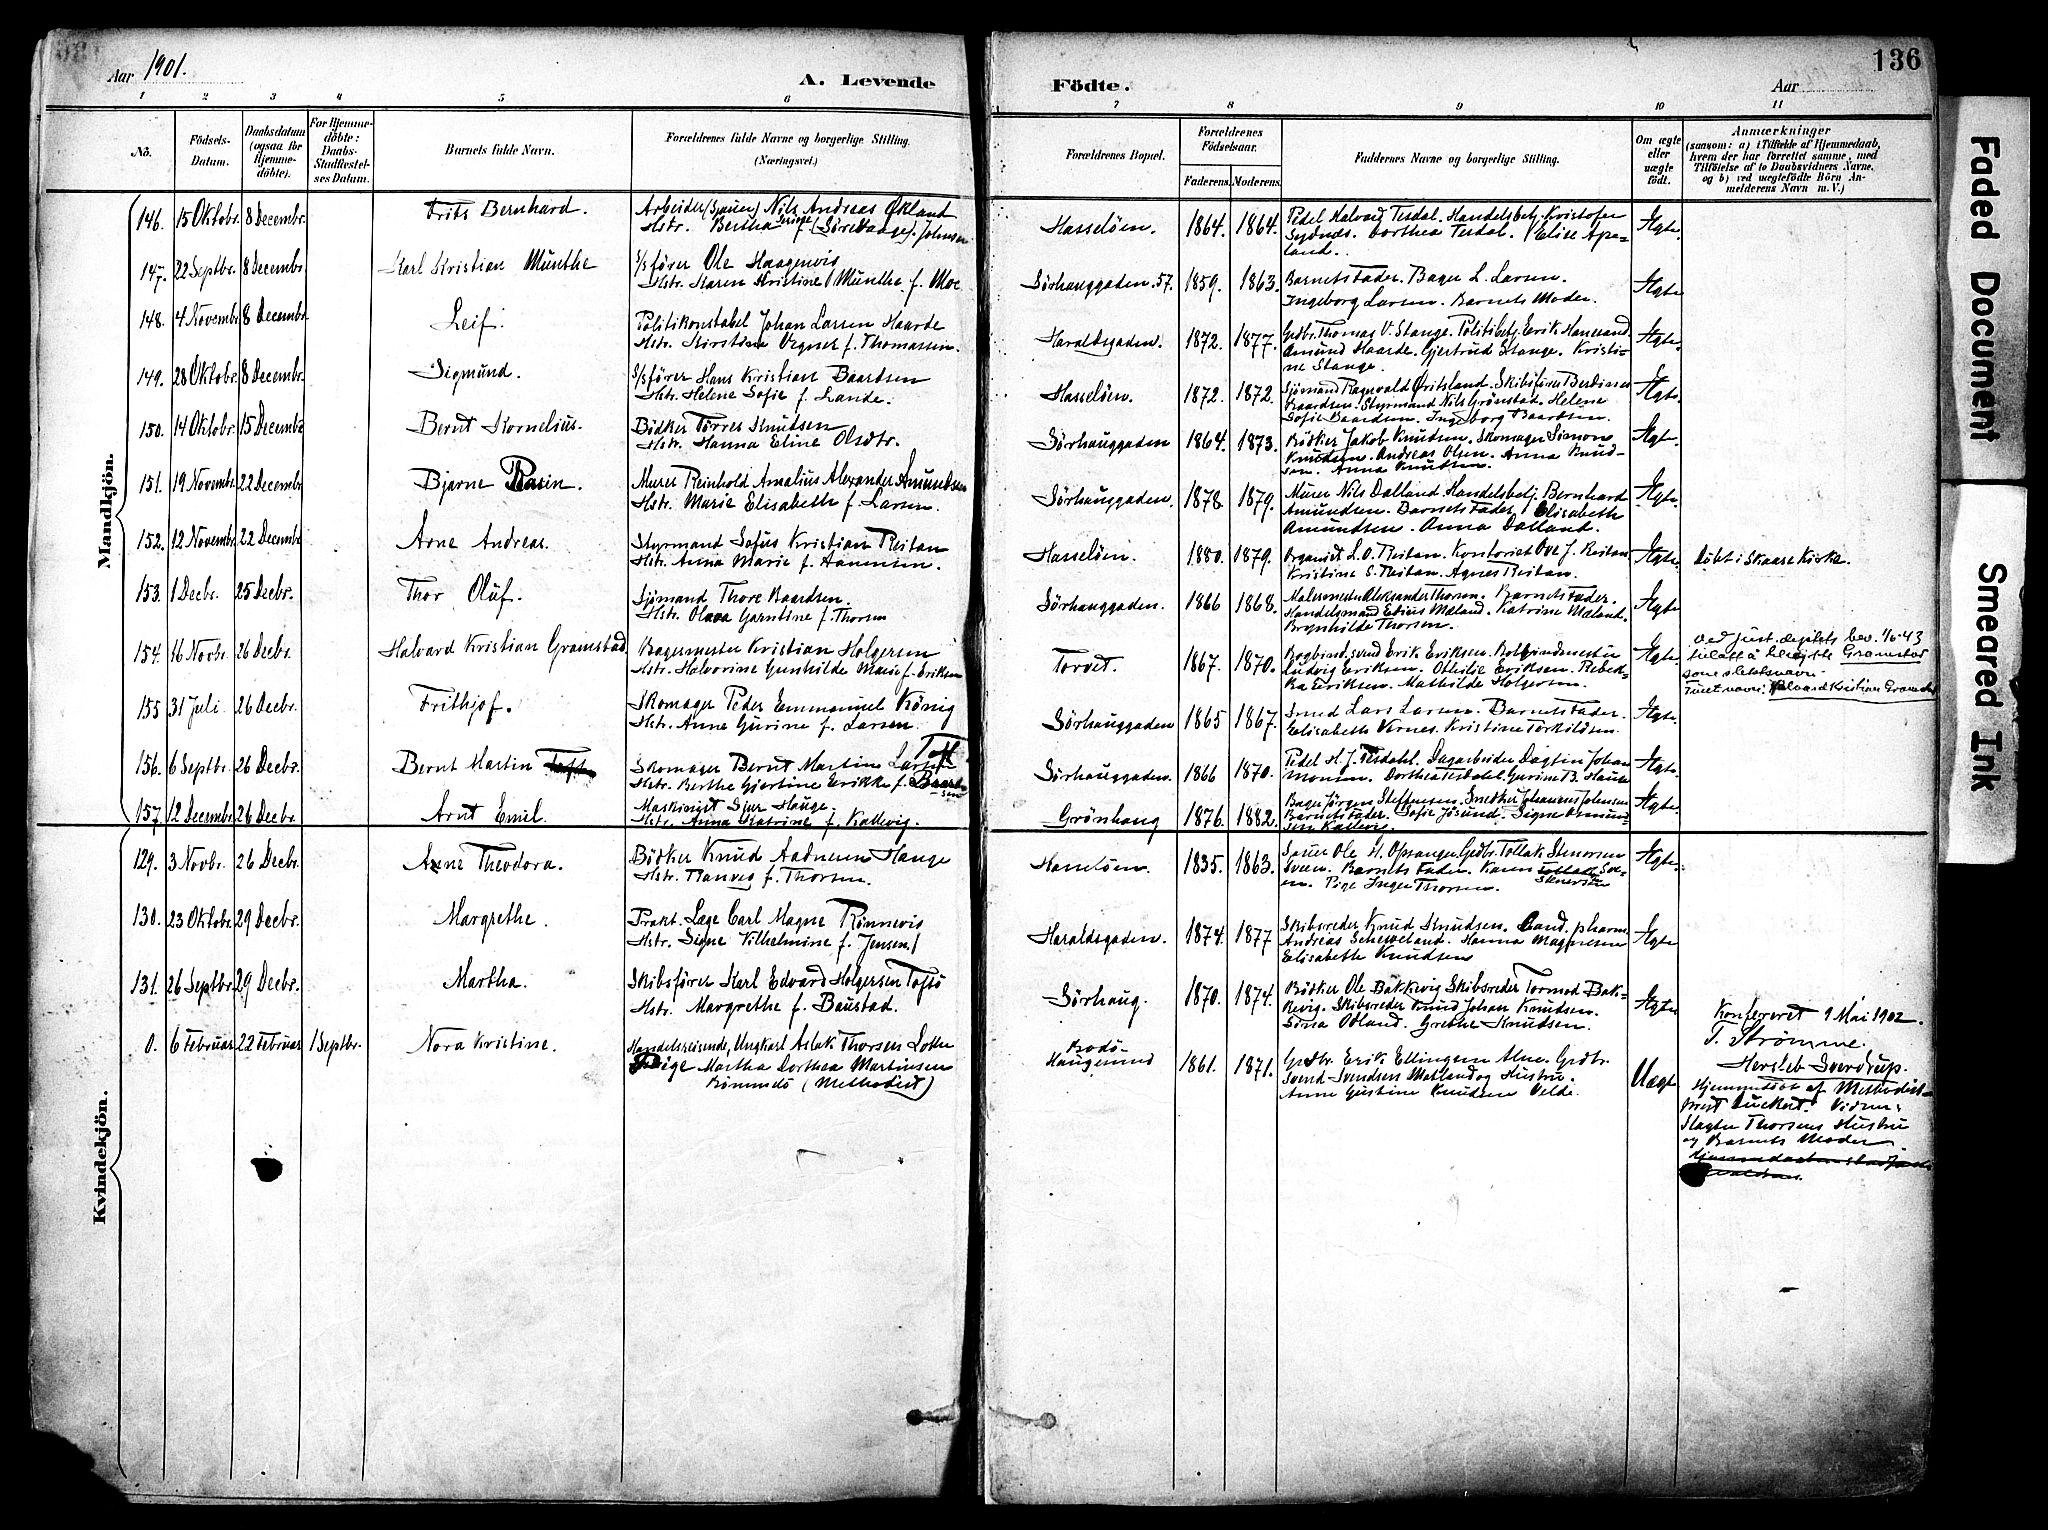 136
Aar 1901.
A. Levende
Födte.
Aar
1 2 3 4 5 6 7 8 9 10 11
No.
Födsels-Datum.
Daabsdatum (ogsaa for Hjemme-döbte).
For Hjemme-döbte: Daabs-Stadfæstel-ses Datum.
Barnets fulde Navn.
Forældrenes fulde Navne og borgerlige Stilling. (Næringsvei.)
Forældrenes Bopæl.
Forældrenes Födselsaar.
Faderens. Moderens.
Faddernes Navne og borgerlige Stilling.
Om ægte eller uægte födt.
Anmærkninger
(saasom: a) i Tilfælde af Hjemmedaab,
hvem der har forrettet samme, med
Tilföielse af to Daabsvidners Navne,
og b) ved uægtefödte Börn An-
melderens Navn m. V.)
Mandkjön.
146. 15 Oktobr. 8 Decembr. Frits Bernhard.
Arbeider Nils Andreas Økland
Hstr. Bertha f. Johnsen
Hasselöen. 1864. 1864.
Pedel Halvard Tesdal. Handelsbetj. Kristofer
Dorthea Tesdal. Elise Apeland.
Ægte.
147. 22 Septbr. 8 Decembr. Karl Kristian Munthe
S/s förer Ole Haagensvis
Hstr. Karen Kristine Munthe f. Moe
Sörhauggaden. 57. 1859. 1863.
Barnets Fader. Bager L. Larsen.
Ingeborg Larsen. Barnets Moder.
Ægte
148. 4 Novembr. 8 Decembr. Leif.
Politikonstabel Johan Larsen Haarde
Hstr. Kirstina f. Thomassen.
Haraldsgaden. 1872. 1877.
Grdbr. Thomas V. Stange. Politibetj. Erik
Amund Haarde. Gjertrud Stange. Kristi-
ne Stange.
Ægte.
149. 28 Oktobr. 8 Decembr. Sigmund.
S/s förer Hans Kristian Baardsen
Hstr. Helene Sofie f. Lande.
Hasselöen. 1872. 1872.
Sjömand Ragnvald Skibsförer
Baardsen. Styrmand Nils Grönstad. Helene
Sofie Baardsen. Ingeborg Baardsen.
Ægte.
150. 14 Oktobr. 15 Decembr. Bernt Kornelius.
Bödker Torres Knudsen
Hstr. Hanna Eline Olsdtr.
Sörhauggaden 1864. 1873.
Bödker Jakob Knudsen. Skomager Simon
Knudsen. Andreas Olsen. Anna Knud-
sen. Anna Knudsen.
Ægte.
151. 19 Novembr. 22 Decembr. Bjarne
Murer Reinhold Amalius Alexander Amundsen
Hstr. Marie Elisabeth f. Larsen.
Sörhauggaden. 1878. 1879.
Murer Nils Dalland. Handelsbetj. Bernhard
Amundsen. Barnets Fader. Elisabeth
Amundsen. Anna Dalland.
Ægte.
152. 12 Novembr. 22 Decembr. Arne Andreas.
Styrmand Sofus Kristian Reitan
Hstr. Anna Marie f. Hanensen.
Hasselöen. 1880. 1879.
Organist L. O. Reitan. Kontorist Ove J. Reitan
Kristine S. Reitan. Agnes Reitan.
Ægte. Döbt i Skaare Kirke.
153. 1 Decbr. 25 Decbr. Thor Oluf.
Sjömand Thore Baardsen.
Hstr. Olava Garntine f. Thorsen
Sörhauggaden. 1866 1868.
Malermester Alexander Thorsen. Barnets Fader.
Handelsmand Edvis Mæland. Katrine Mæland.
Brynhilde Thorsen.
Ægte
154. 16 Novbr. 26 Decbr. Halvard Kristian Gramstad.
Bagermester Kristian Holgersen
Hstr. Halvorine Gunhilde Marie f. Eriksen
Torvet. 1867. 1870.
Bogbind.svend Erik Eriksen. Bogbindmester
Ludvig Eriksen. Othilie Eriksen. Rebek-
ka Eriksen. Mathilde Holgersen.
Ægte.
Ved just. dept.s bev. 1/6-43
tillatt å benytte Gramstad
som slektsnavn.
Halvard Kristian Gramstad
155 31 Juli. 26 Decbr. Frithjof.
Skomager Peder Emmanuel König
Hstr. Anne Gurine f. Larsen.
Sörhauggaden 1865 1867.
Smed Lars Larsen. Barnets Fader.
Elisabeth Vernes. Kristine Torkildsen.
Ægte.
156. 6 Septbr. 26 Decbr. Bernt Martin Toft
Skomager Bernt Martin Larsen Toft
Hstr. Berthe Gjertine Erikke f. Baardsen
Sörhauggaden. 1866 1870.
Pedel H. J. Tesdahl. Dagarbeider Dagfin Johan
Monsen. Dorthea Tesdahl. Gurine B. Hauge
Ægte.
157. 12 Decembr. 26 Decbr. Arnt Emil.
Maskinist Sjur Hauge.
Hstr. Anna Katrine f. Kallevig.
Grönhaug 1876. 1882.
Bager Jörgen Steffensen. Snedker Johannes Johnsen
Barnets Fader. Sofie Jösund. Signe
Kallevig.
Ægte.
Kvindekjön.
129. 3 Novbr. 26 Decbr. Arne Theodora.
Bödker Knud Aadnesen Hauge
Hstr. Ranveg f. Thorsen.
Hasselöen. 1835. 1863.
Ole H. Opsanger. Grdbr. Tollak Stenersen
Sveen. Barnets Fader. Karen
Pige Inger Thorsen.
Ægte.
130. 23 Oktobr. 29 Decbr. Margrethe.
Prakt. Læge Carl Magne Rönnevig
Hstr. Signe Vilhelmine f. Jensen.
Haraldsgaden. 1874. 1877
Skibsreder Knud Knudsen. Cand. pharm.
Andreas Scheveland. Hanna Magnesen
Elisabeth Knudsen
Ægte
131. 26 Septbr. 29 Decbr. Martha.
Skibsförer Karl Edvard Holgersen Toftö
Hstr. Margrethe f. Baustad.
Sörhaug. 1870. 1874.
Bödker Ole Bakkevig Skibsreder Tormod Bak-
kevig. Skibsreder Knud Johan Knudsen.
Sina Odland. Grethe Knudsen.
Ægte
0. 6 Februar 22 Februar 1 Septbr. Nora Kristine.
Handelsreisende, Ungkarl Aslak Thorsen Lothe
Pige Martha Dorthea Martinsen
Römmedö (Methodist)
Bodö-
Haugesund 1861. 1871.
Grdbr. Erik Ellingsen Alne. Grdbr.
Svend Svendsen Matland og Hustru.
Anne Gurine Knudsen Velde.
Uægte
Konfereret 9 Mai 1902.
T. Strömme.
Hersleb Sverdrup.
Hjemmedöbt af Methodist-
præst Vidner:
Slagter Thorsens Hustru
og Barnets Moder
Faded Document
Smeared Ink